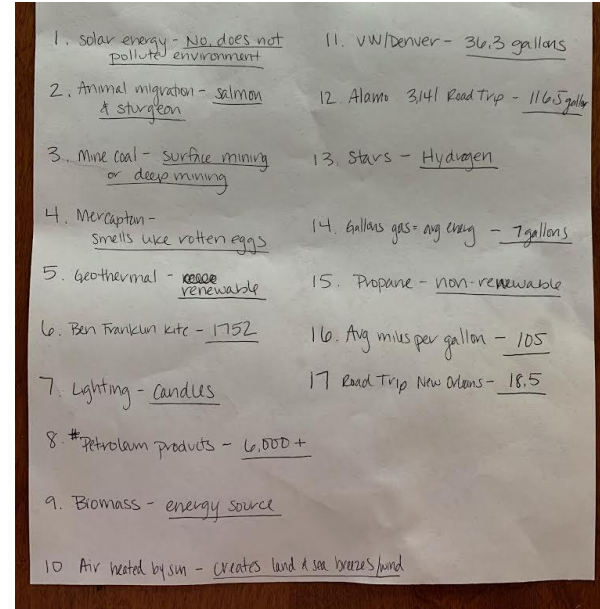 1. solar energy - No, does not
pollute environment
2. Animal migration - salmon
& sturgeon
3. Mine coal - surface mining
or deep mining
4. Mercaptan -
smells like rotten eggs
5. Geothermal -
renewable
6. Ben Franklin kite - 1752
7. Lighting - candles
8. # Petroleum products - 6,000 +
9. Biomass - energy source
10 Air heated by sun - creates land & sea breezes/wind
11. VW/Denver - 36.3 gallons
12. Alamo 3,141 Road Trip - 116.5 gallon
13. Stars - Hydrogen
14. Gallons gas = avg energ - 7 gallons
15. Propane - non-renewable
16. Avg miles per gallon - 105
17 Road Trip New Orleans - 18.5